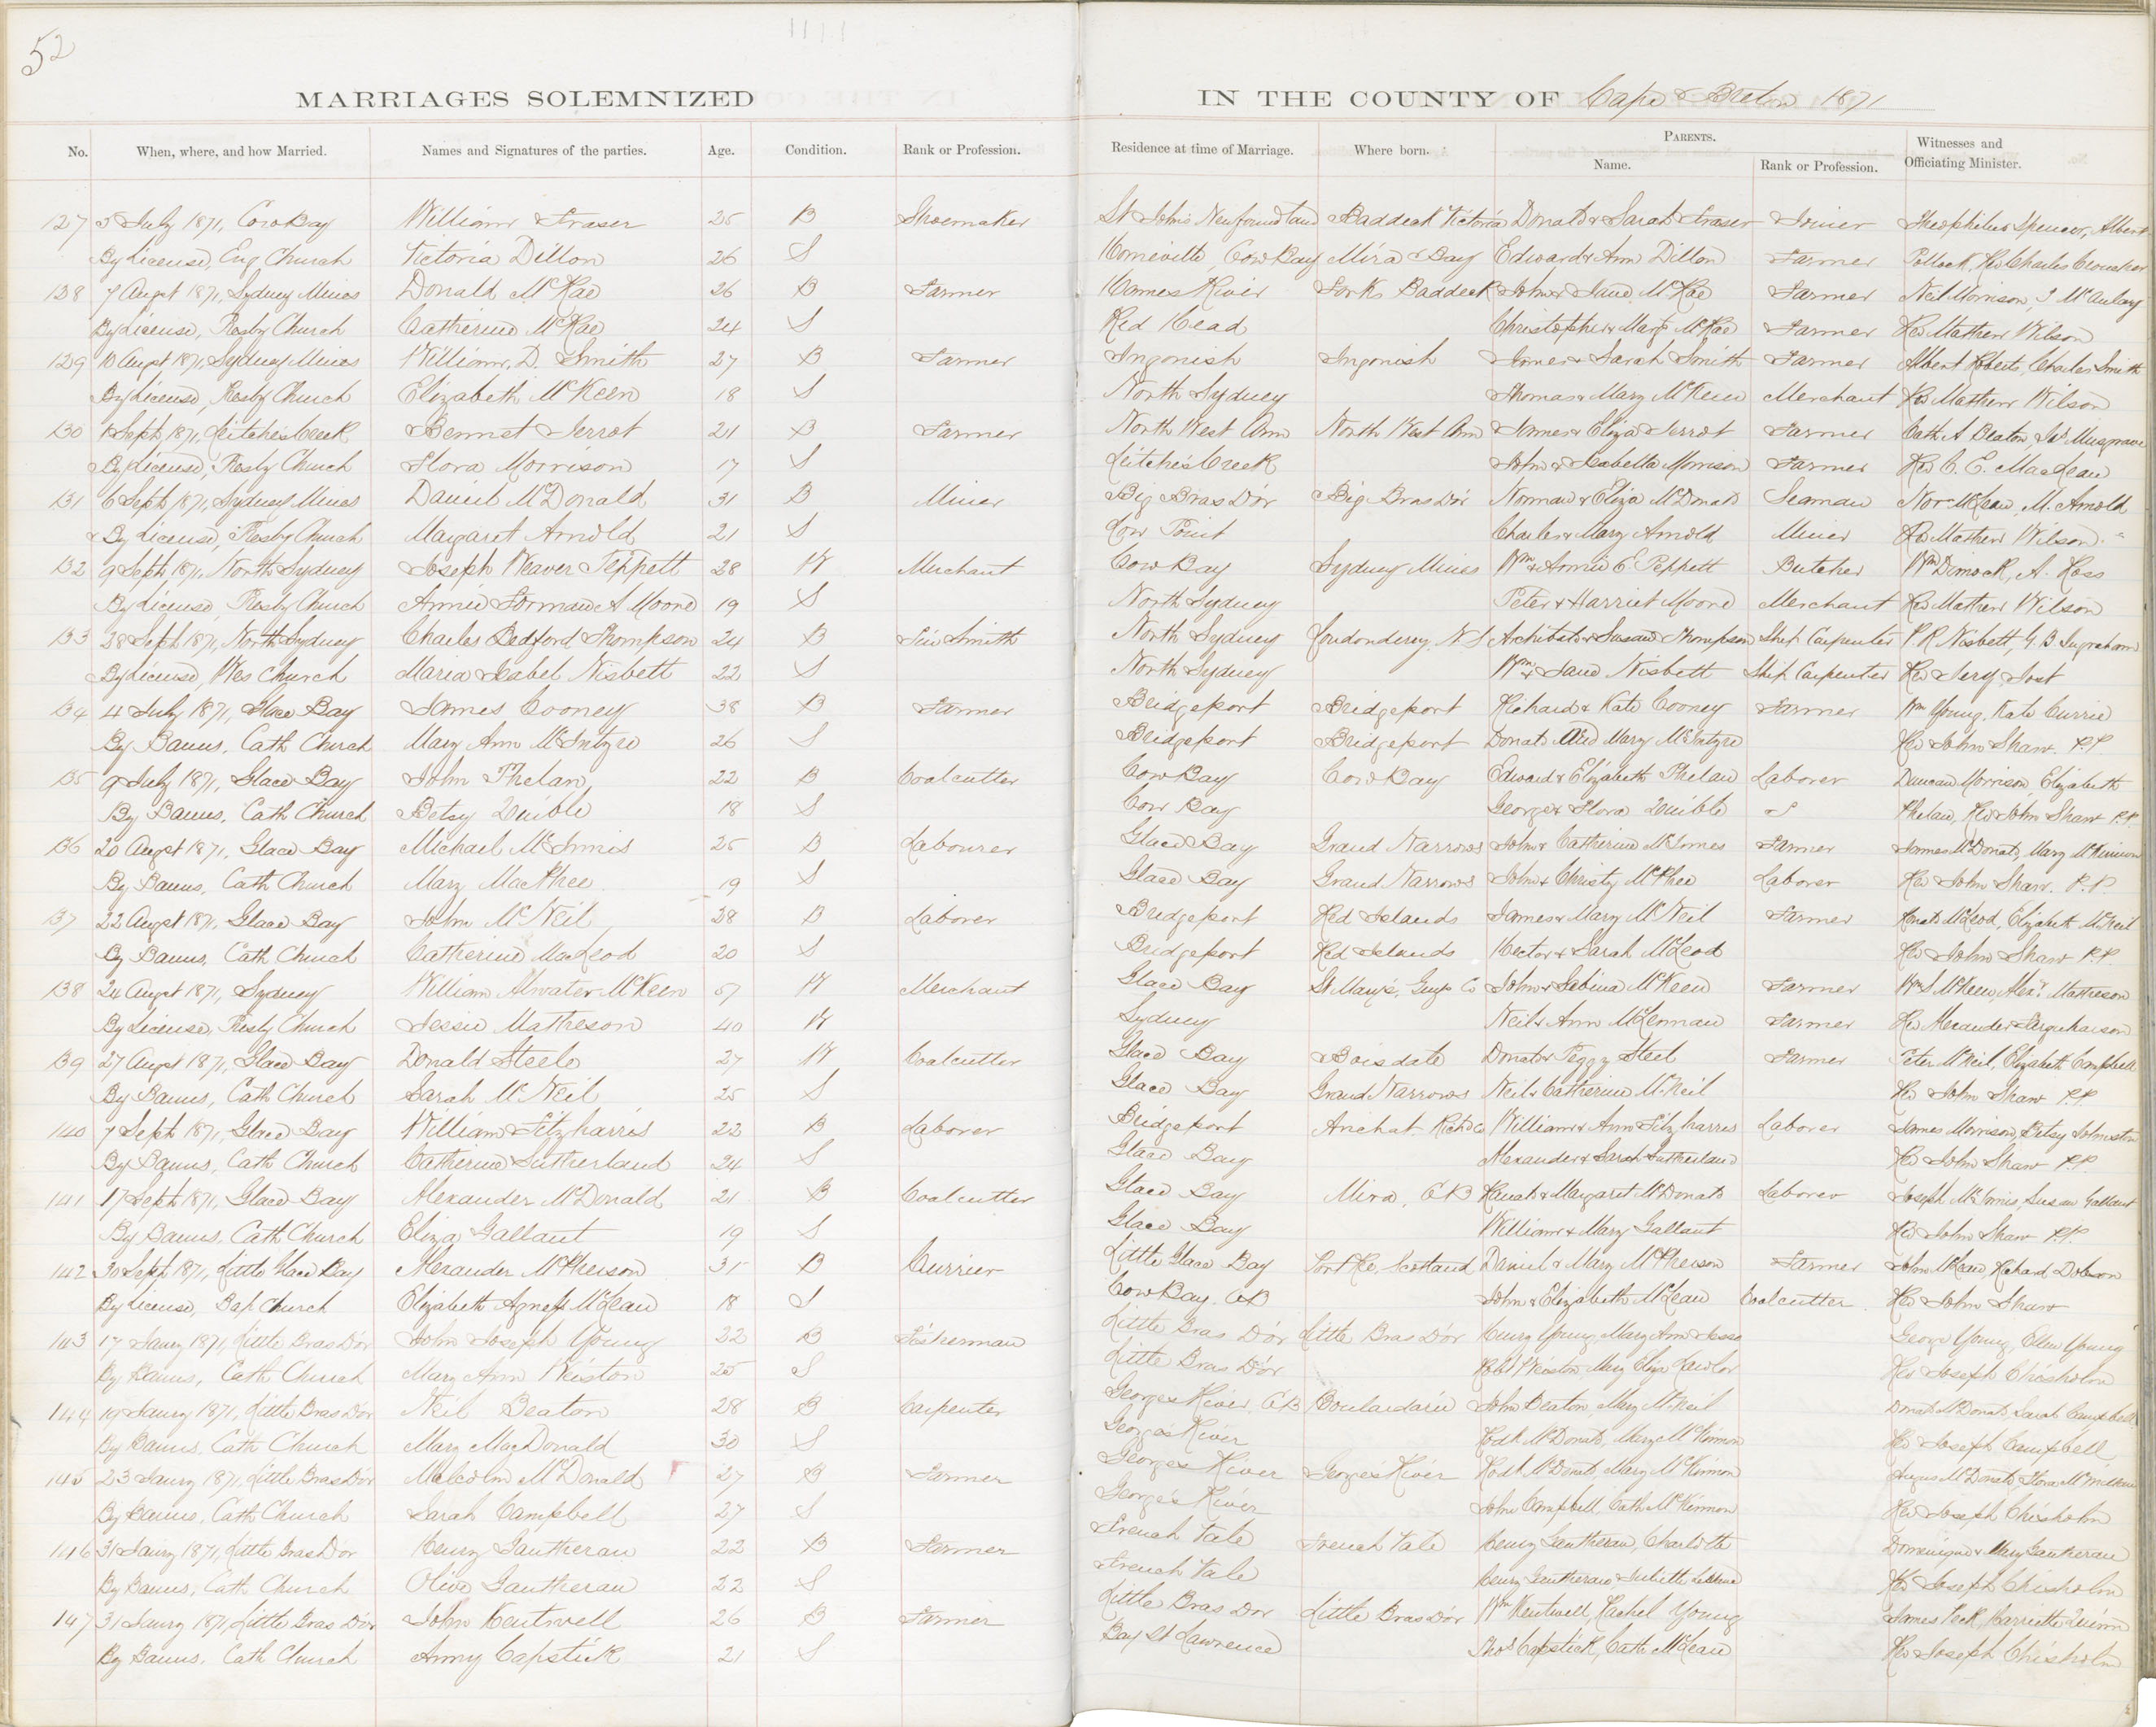 52
MARRIAGES SOLEMNIZED IN THE COUNTY OF Cape Breton 1871
No. When, where, and how Married. Names and Signatures of the parties. Age. Condition. Rank or Profession. Residence at time of Marriage. Where born. PARENTS. Name. Rank or Profession. Witnesses and Officiating Minister.
127 5 July 1871, Cow Bay William Fraser 25 B Shoemaker St Johns Newfoundland Baddeck Victoria Donald & Sarah Fraser Joiner Theophilus Spencer, Albert
By License, Eng Church Victoria Dillon 26 S Homeville, Cow Bay Mira Bay Edward & Ann Dillon Farmer Pollock, Rev Charles Croucher
128 7 Augst 1871, Sydney Mines Donald McRae 26 B Farmer Humes River Forks Baddeck John & Jane McRae Farmer Neil Morrison, J McAulay
By License, Presby Church Catherine McRae 24 S Red Head Christopher & Margt McRae Farmer Rev Mathew Wilson
129 10 Augst 1871, Sydney Mines William D. Smith 27 B Farmer Ingonish Ingonish & Sarah Smith Farmer Albert Roberts, Charles Smith
By License, Presby Church Elizabeth McKeen 18 S North Sydney Thomas & Mary McKeen Merchant Rev Mathew Wilson
130 1 Sept 1871, Leitches Creek Bennet Jerrot 21 B Farmer North West Arm North West Arm James & Eliza Jerrot Farmer Cath A Beaton, Musgrave
By License, Presby Church Flora Morrison 17 S Leitches Creek John & Isabella Morrison Farmer Rev C. E. MacLean
131 6 Sept 1871, Sydney Mines Daniel McDonald 31 B Miner Big Bras D'or Big Bras D'or Norman & Eliza McDonald Seaman Nor McLean, M. Arnold
By License, Presby Church Margaret Arnold 21 S Low Point Charles & Mary Arnold Miner Rev Mathew Wilson
132 9 Sept 1871, North Sydney Joseph Weaver Peppett 28 W Merchant Cow Bay Sydney Mines Wm & Annie E Peppett Butcher Wm Dimock, A. Ross
By License, Presby Church Annie Norman A Moore 19 S North Sydney Peter & Harriet Moore Merchant Rev Mathew Wilson
133 28 Sept 1871, North Sydney Charles Bedford Thompson 24 B Tin Smith North Sydney Londonderry N.S Archibald & Susan Thompson Ship Carpenter P. R Nisbett, G. B Ingraham
By License, Wes Church Maria Isabel Nisbett 22 S North Sydney Wm & Jane Nisbett Ship Carpenter Rev Jery Jost
134 4 July 1871, Glace Bay James Cooney 38 B Farmer Bridgeport Bridgeport Richard & Kate Cooney Farmer Wm Young, Kate Currie
By Banns, Cath Church Mary Ann McIntyre 26 S Bridgeport Bridgeport Donald And Mary McIntyre Rev John Shaw P.P
135 9 July 1871, Glace Bay John Phelan 22 B Coalcutter Cow Bay Cow Bay Edward & Elizabeth Phelan Laborer Duncan Morrison, Elizabeth
By Banns, Cath Church Betsy 18 S Cow Bay George & Flora Phelan, Rev John Shaw P.P.
136 20 Augst 1871, Glace Bay Michael McInnis 25 B Labourer Glace Bay Grand Narrows John & Catherine McInnes Farmer James McDonald, Mary McKinnon
By Banns, Cath Church Mary MacPhee 19 S Glace Bay Grand Narrows John & Christy McPhee Laborer Rev John Shaw. P.P.
137 22 Augst 1871, Glace Bay John McNeil 28 B Laborer Bridgeport Red Islands James & Mary McNeil Farmer Ronald McLeod, Elizabeth McNeil
By Banns, Cath Church Catherine MacLeod 20 S Bridgeport Red Islands Hector & Sarah McLeod Rev John Shaw P.P.
138 24 Augst 1871, Sydney William Atwater McKeen 57 W Merchant Glace Bay St Marys, Guys Co John & Sebina McKeen Farmer Wm S McKeen, Alexr Matheson
By License, Presby Church Jessie Matheson 40 W Sydney Neil & Ann McLennan Farmer Rev Alexander Farquharson
139 27 Augst 1871, Glace Bay Donald Steele 27 W Coalcutter Glace Bay Boisdale Donald & Peggy Steel Farmer Peter McNeil, Elizabeth Campbell
By Banns, Cath Church Sarah McNeil 25 S Glace Bay Grand Narrows Neil & Catherine McNeil Rev John Shaw P.P.
140 7 Sept 1871, Glace Bay William Fitzharris 22 B Laborer Bridgeport Arichat. Richd Co William & Ann Fitzharris Laborer James Morrison, Betsy Johnston
By Banns, Cath Church Catherine Sutherland 24 S Glace Bay Alexander & Sarah Sutherland Rev John Shaw P.P.
141 17 Sept 1871, Glace Bay Alexander McDonald 21 B Coalcutter Glace Bay Mira, C.B Ronald & Margaret McDonald Laborer Joseph McInnis, Susan Gallant
By Banns, Cath Church Eliza Gallant 19 S Glace Bay William & Mary Gallant Rev John Shaw P.P.
142 30 Sept 1871, Little Glace Bay Alexander McPherson 31 B Currier Little Glace Bay Port Ree, Scotland Daniel & Mary McPherson Farmer John McLean, Richard Dobson
By License, Bap Church Elizabeth Agness McLean 18 S Cow Bay. CB John & Elizabeth McLean Coalcutter Rev John Shaw
143 17 Jany 1871, Little Bras D'or John Joseph Young 22 B Fisherman Little Bras D'or Little Bras D'or Henry Young, Mary Ann Jesso George Young, Ellen Young
By Banns, Cath Church Mary Ann Weiston 25 S Little Bras D'or Robt Weiston Mary Eliza Lawlor Rev Joseph Chisholm
144 19 Jany 1871, Little Bras D'or Neil Beaton 28 B Carpenter Georges River, C.B Boulardarie John Beaton, Mary McNeil Donald McDonald, Sarah Campbell
By Banns, Cath Church Mary MacDonald 30 S George's River Rodk McDonald, Mary McKinnon Rev Joseph Campbell
145 23 Jany 1871, Little Bras D'or Malcolm McDonald 27 B Farmer Georges River Georges River Rodk McDonald, Mary McKinnon Angus McDonald, Flora McMillan
By Banns, Cath Church Sarah Campbell 27 S George's River John Campbell, Cath McKinnon Rev Joseph Chisholm
146 31 Jany 1871, Little Bras D'or Henry Gautherau 22 B Farmer French Vale French Vale Henry Gautherau, Charlotte Dominique & Mary Gautherau
By Banns, Cath Church Olive Gautherau 22 S French Vale Henry Gautherau, Juliette Rev Joseph Chisholm
147 31 Jany 1871, Little Bras D'or John Kentwell 26 B Farmer Little Bras Dor Little Bras D'or Wm Kentwell, Rachel Young James Peck, Harriette Quinn
By Banns, Cath Church Anny Capstick 21 S Bay St Lawrence Thos Capstick, Cath McLean Rev Joseph Chisholm